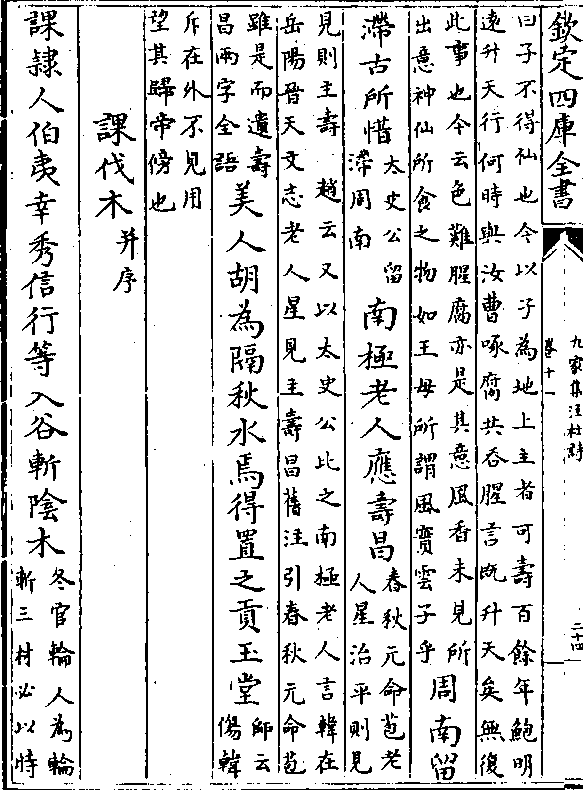 欽定四庫全書
九家集注杜詩
卷十一
二十四
曰子不得仙也今以子為地上主者可壽百餘年鮑明
遠升天行何時與汝曹啄腐共吞腥言既升天矣無復
此事也今云色難腥腐亦是其意風香未見所
出意神仙所食之物如王母所謂風實雲子乎
周南留
滯古所惜
太史公留
滯周南
南極老人應壽昌
春秋元命苞老
人星治平則見
見則主壽 趙云又以太史公比之南極老人言韓在
岳陽晉天文志老人星見主壽昌舊注引春秋元命苞
雖是而遺壽
昌兩字全語
美人胡為隔秋水焉得置之貢玉堂
師云
傷韓
斥在外不見用
望其歸帝傍也
課伐木并序
課隸人伯夷幸秀信行等入谷斬陰木
冬官輪人為輪
斬三材必以時